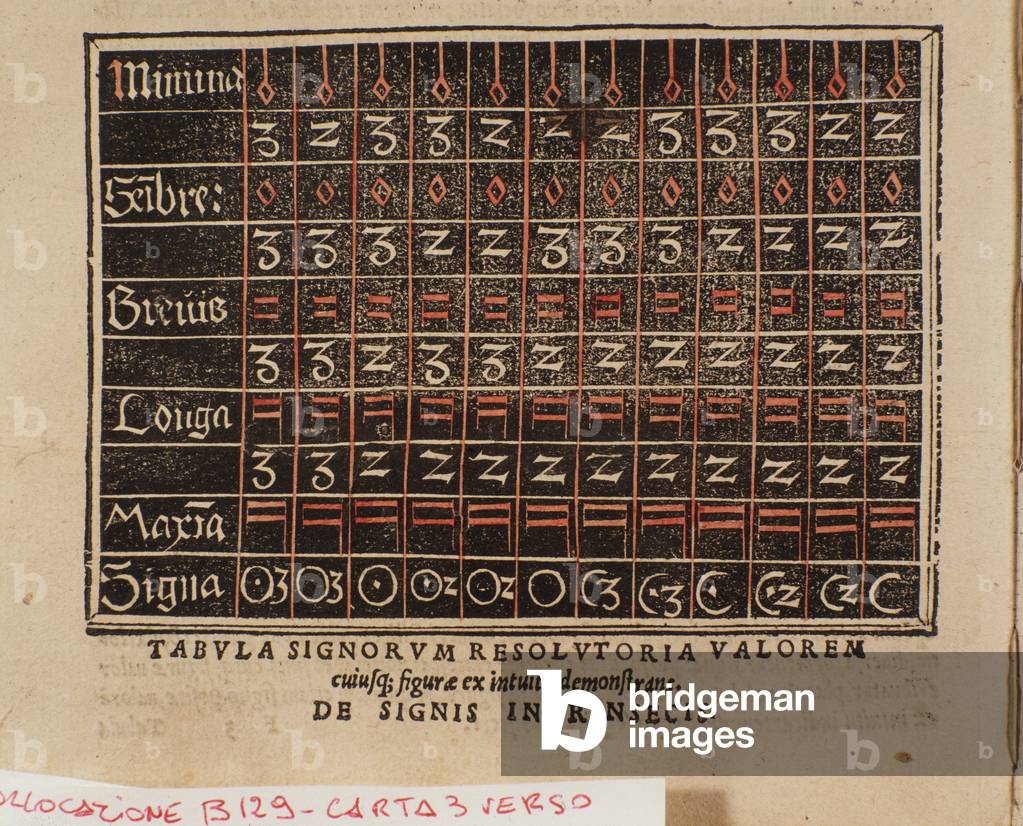 Minima
3 2 3 3 2 2 2 3 3 3 2 2
Semibre:
3 3 3 2 2 3 3 3 2 2 2 2
Brevis
3 3 2 3 3 2 2 2 2 2 2 2
Longa
3 3 2 2 2 2 2 2 2 2 2 2
Maxīa
Signa O3 O3 O O2 O2 O C3 C3 C C2 C2 C
TABVLA SIGNORVM RESOLVTORIA VALOREM
cuiusq; figuræ ex intuitu demonstrans.
DE SIGNIS INTRANSECIS.
bridgeman
images
COLLOCAZIONE B 129 - CARTA 3 VERSO